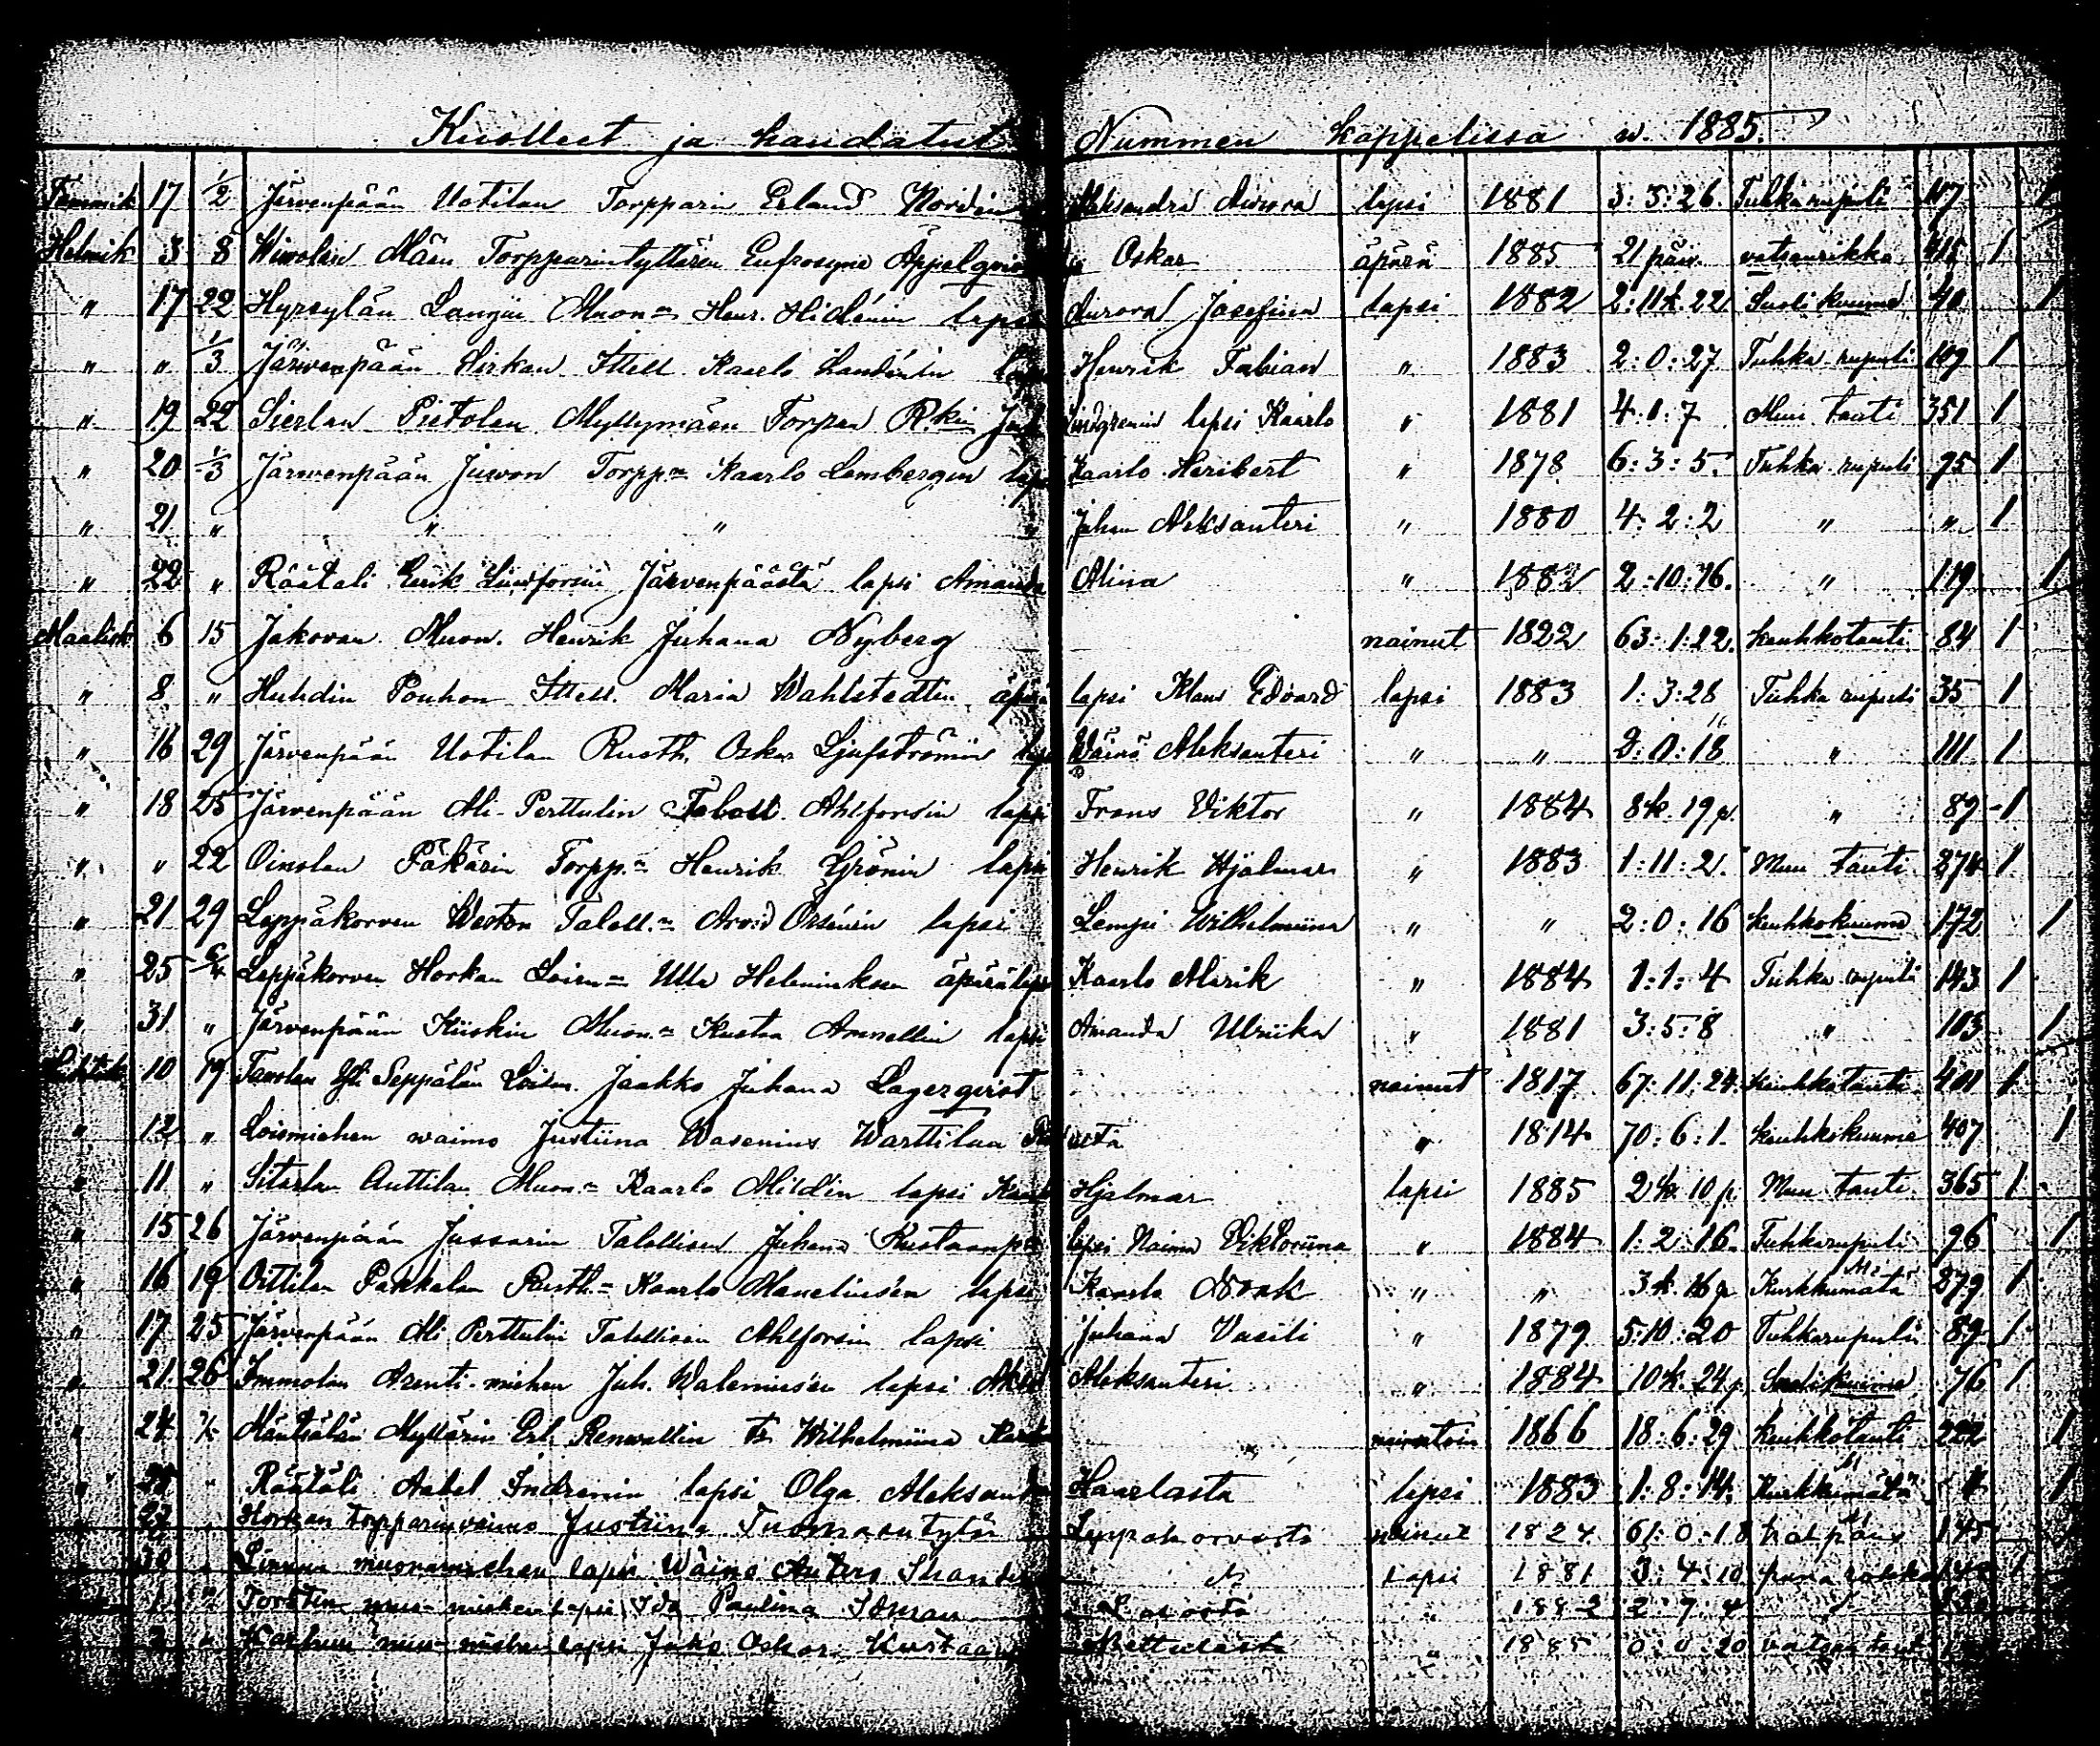 Kuolleet ja haudatut Nummen kappelissa w. 1885.
Tammik 17 1/2 Järvenpään Uotilan Torpparin Erland Nordin Aleksandra Aurora lapsi 1881 3:5:26. Tuhkarupuli 117 1
Helmik 3 8 Wiwolan Mäen Torpparintyttären Eufrosyne Oskar äpärä 1885 21 päiv. vatsanrikko 415 1
" 17 22 Hyrsylän Langin Muon= Henr. Hidénin lapsi Aurora Josefina lapsi 1882 2:11k:22 Suolikuume 40 1
" " 1/3 Järvenpään Sirkan Ittell. Kaarlo Henrik Fabian " 1883 2:0:27 Tuhka rupuli 109 1
" 19 22 Sierlan Pietolan Myllymäen Torpan Lindgrenin lapsi Kaarlo " 1881 4:1:7 Muu tauti 351 1
" 20 1/3 Järvenpään Juvon Torpp= Kaarlo Lembergin lapsi Kaarlo Heribert " 1878 6:3:5. Tuhka rupuli 95 1
" 21 " " " " Juhan Aleksanteri " 1880 4:2:2 " " 1
" 22 " Räätäli Erik Lindforsin Järvenpäästä lapsi Amanda Alina " 1882 2:10:16. " 119 1
Maalisk 6 15 Jakovan Muon. Henrik Juhana Nyberg nainut 1822 63:1:22. keuhkotauti 84 1
" 8 " Huhdin Pouhon Ittell. Maria Wahlstedtin äpärä lapsi Klaus Edvard lapsi 1883 1:3:28 Tuhka rupuli 35 1
" 16 29 Järvenpään Uotilan Rusth. Oskar Ljufströmin lapsi Wäinö Aleksanteri " " 2:0:18 " 111 1
" 18 25 Järvenpään Ali-Perttulin Taloll. Ahlforsin lapsi Frans Viktor " 1884 8k. 19p. " 89 1
" " 22 Oinolan Päkärin Torpp.= Henrik Grönin lapsi Henrik Hjalmar " 1883 1:11:2. Muu tauti 274 1
" 21 29 Leppäkorven Weston Taloll.= Arvid Orsénin lapsi Lempi Wilhelmiina " " 2:0:16 keuhkokuume 172 1
" 25 6/4 Leppäkorven Horkan Loism= Ulla Heleniuksen äpärälapsi Kaarlo Alarik " 1884 1:1:4 Tuhka rupuli 143 1
" 31 " Järvenpään Kiiskin Muon.= Kustaa Amnellin lapsi Amanda Ulriika " 1881 3:5:8 " 103 1
10 19 Tavolan Yli Seppälän Loism. Jaakko Juhana Lagerqvist nainut 1817 67:11:24. keuhkotauti 401 1
" 12 " Loismiehen waimo Justiina Wasenius Warttilan " 1814 70:6:1. keuhkokuume 407 1
" 11 " Sitarlan Anttilan Muon.= Kaarlo Mildin lapsi Kaarlo Hjalmar lapsi 1885 2k. 10p Muu tauti 365 1
" 15 26 Järvenpään Jussarin Talollisen Juhana Kustaanp. lapsi Naima Viktoriina " 1884 1:2:16. Tuhkarupuli 96 1
" 16 19 Oittilan Pakkalan Rusth.= Kaarlo Maneliusén lapsi Kaarlo Noak " " 3k. 16p Kurkkumätä 279 1
" 17 25 Järvenpään Ali Perttulin Talollisen Ahlforsin lapsi Juhana Vasili " 1879 5:10:20 Tuhkarupuli 89 1
" 21 26 Immolan Arenti-miehen Juh. Waleniusén lapsi Aleksanteri " 1884 10k. 24p Suolikuume 76 1
" 24 Mäntsälän Myllärin Erl. Renwallin tr Wilhelmiina 1866 18:6:29 keuhkotauti 222 1
" Räätäli Aabel Indrenin lapsi Olga Aleksandra Haarlasta lapsi 1883 1:8:14. Kurkkumätä 1
27 Horkan torpparinvaimo Justiina Tuomaantytär Leppäkorvesta nainut 1824 61:0:18 145
muonamiehen lapsi Wäinö Antero lapsi 1881 3:4:10 1
lapsi Ida Paulina " 1882 2:7:4
lapsi Juho Oskar Kustaan " 1885 0:0:20